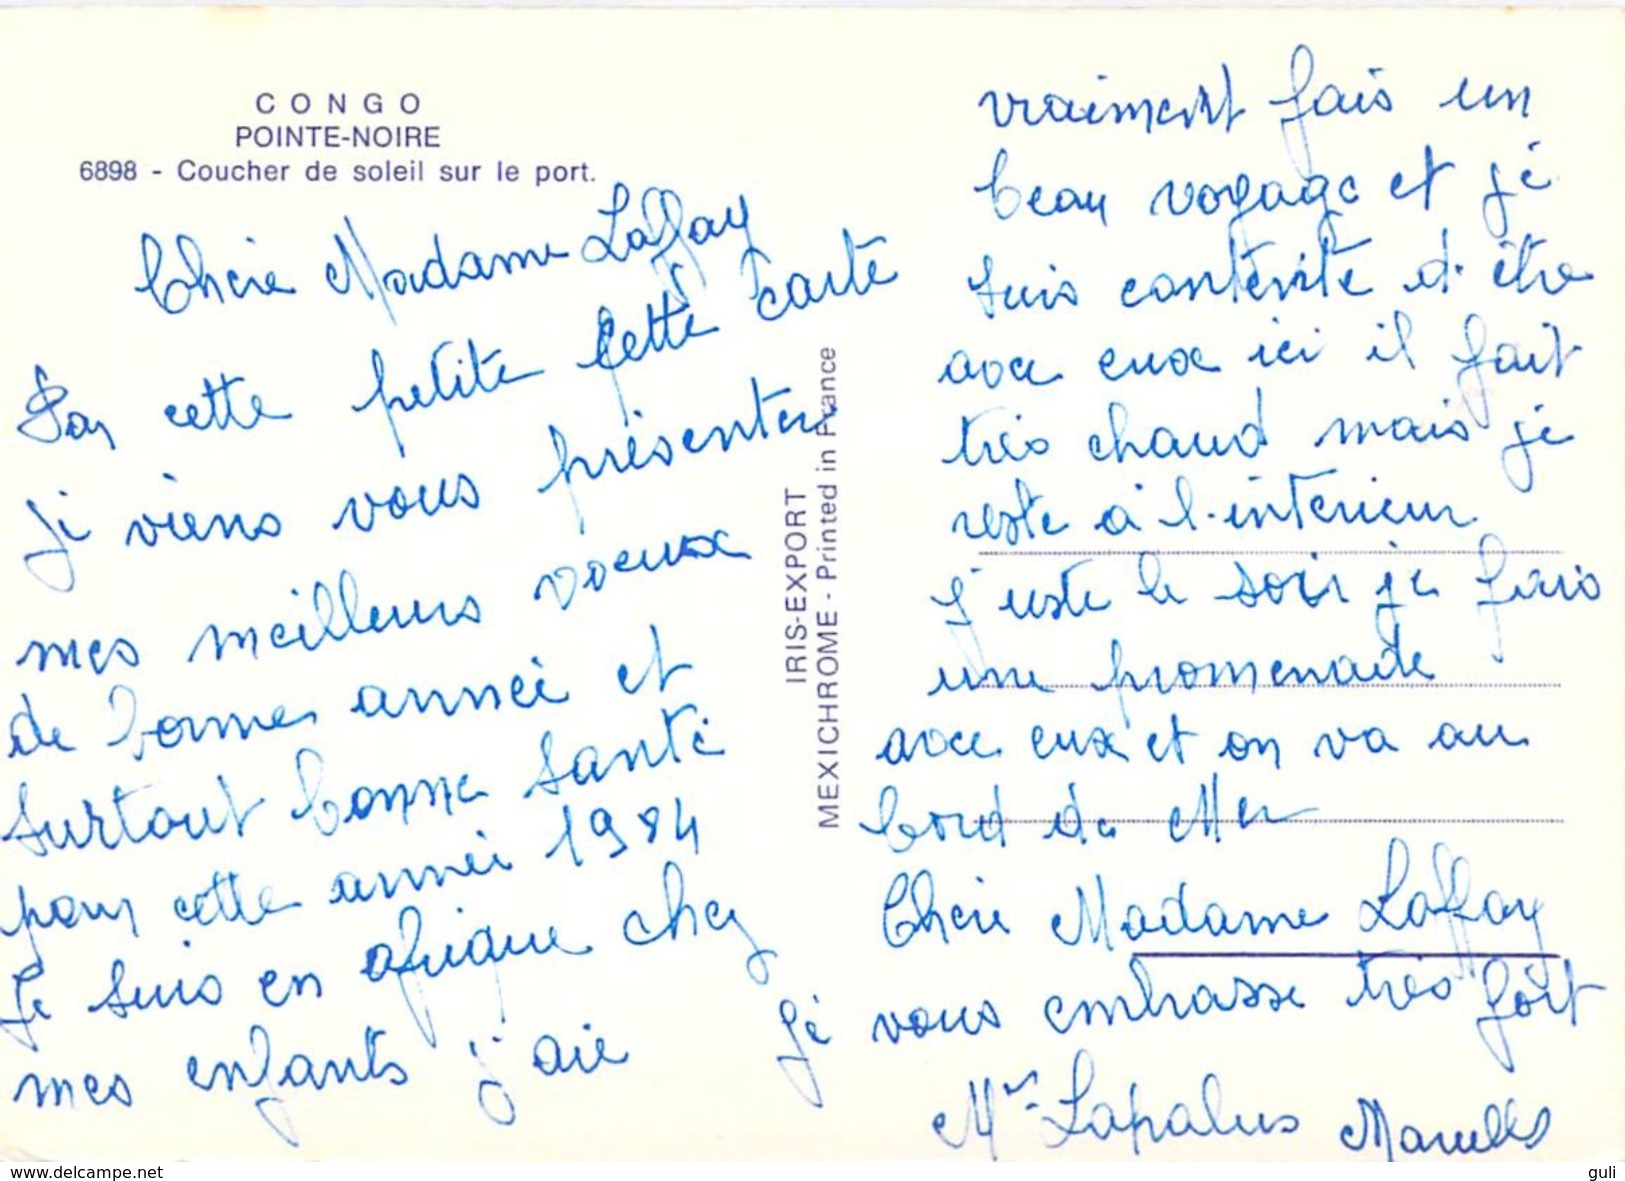 CONGO
POINTE-NOIRE
6898 - Coucher de soleil sur le port.
Chère Madame Laffay
Par cette petite cette carte
je viens vous présenter
mes meilleurs voeux
de bonne année et
surtout bonne santé
pour cette année 1984
Je suis en afrique chez
mes enfants j'aie
IRIS-EXPORT
MEXICHROME - Printed in France
vraiment fais un
beau voyage et je
suis contente d'être
avec eux ici il fait
très chaud mais je
reste à l'intérieur
j'uste le soir je fais
une promenade
avec eux et on va au
bord de Mer
Chère Madame Laffay
je vous embrasse très fort
Me Lapalus Marcelle
www.delcampe.net
guli